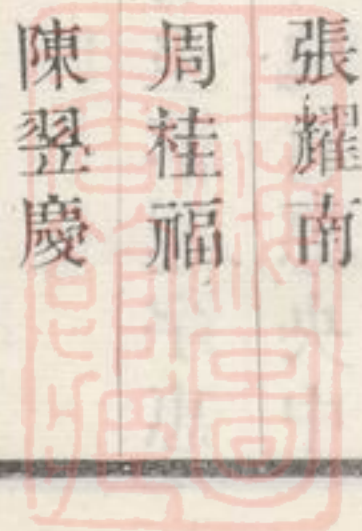 張耀南
周桂福
陳翌慶